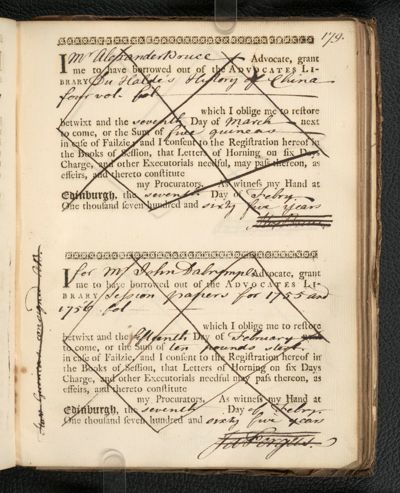 179.
I Mr Alexander Bruce Advocate, grant
me to have borrowed out of the ADVOCATES LI-
BRARY Du Halde's History of China
four vol. fol.
which I oblige me to restore
betwixt and the seventh Day of March next
to come, or the Sum of five guineas
in case of Failzie; and I consent to the Registration hereof in
the Books of Session, that Letters of Horning on six Days
Charge, and other Executorials needful, may pass thereon, as
effeirs, and thereto constitute
my Procurators. As witness my Hand at
Edinburgh, the seventh Day of Febry.
One thousand seven hundred and sixty five years
I for Mr John Dalrymple Advocate, grant
me to have borrowed out of the ADVOCATES LI-
BRARY Session papers for 1755 and
1756 fol.
which I oblige me to restore
betwixt and the Day of February
to come, or the Sum of ten pounds
in case of Failzie, and I consent to the Registration hereof in
the Books of Session, that Letters of Horning on six Days
Charge, and other Executorials needful may pass thereon, as
effeirs, and thereto constitute
my Procurators. As witness my Hand at
Edinburgh, the seventh Day of Febry.
One thousand seven hundred and sixty five years